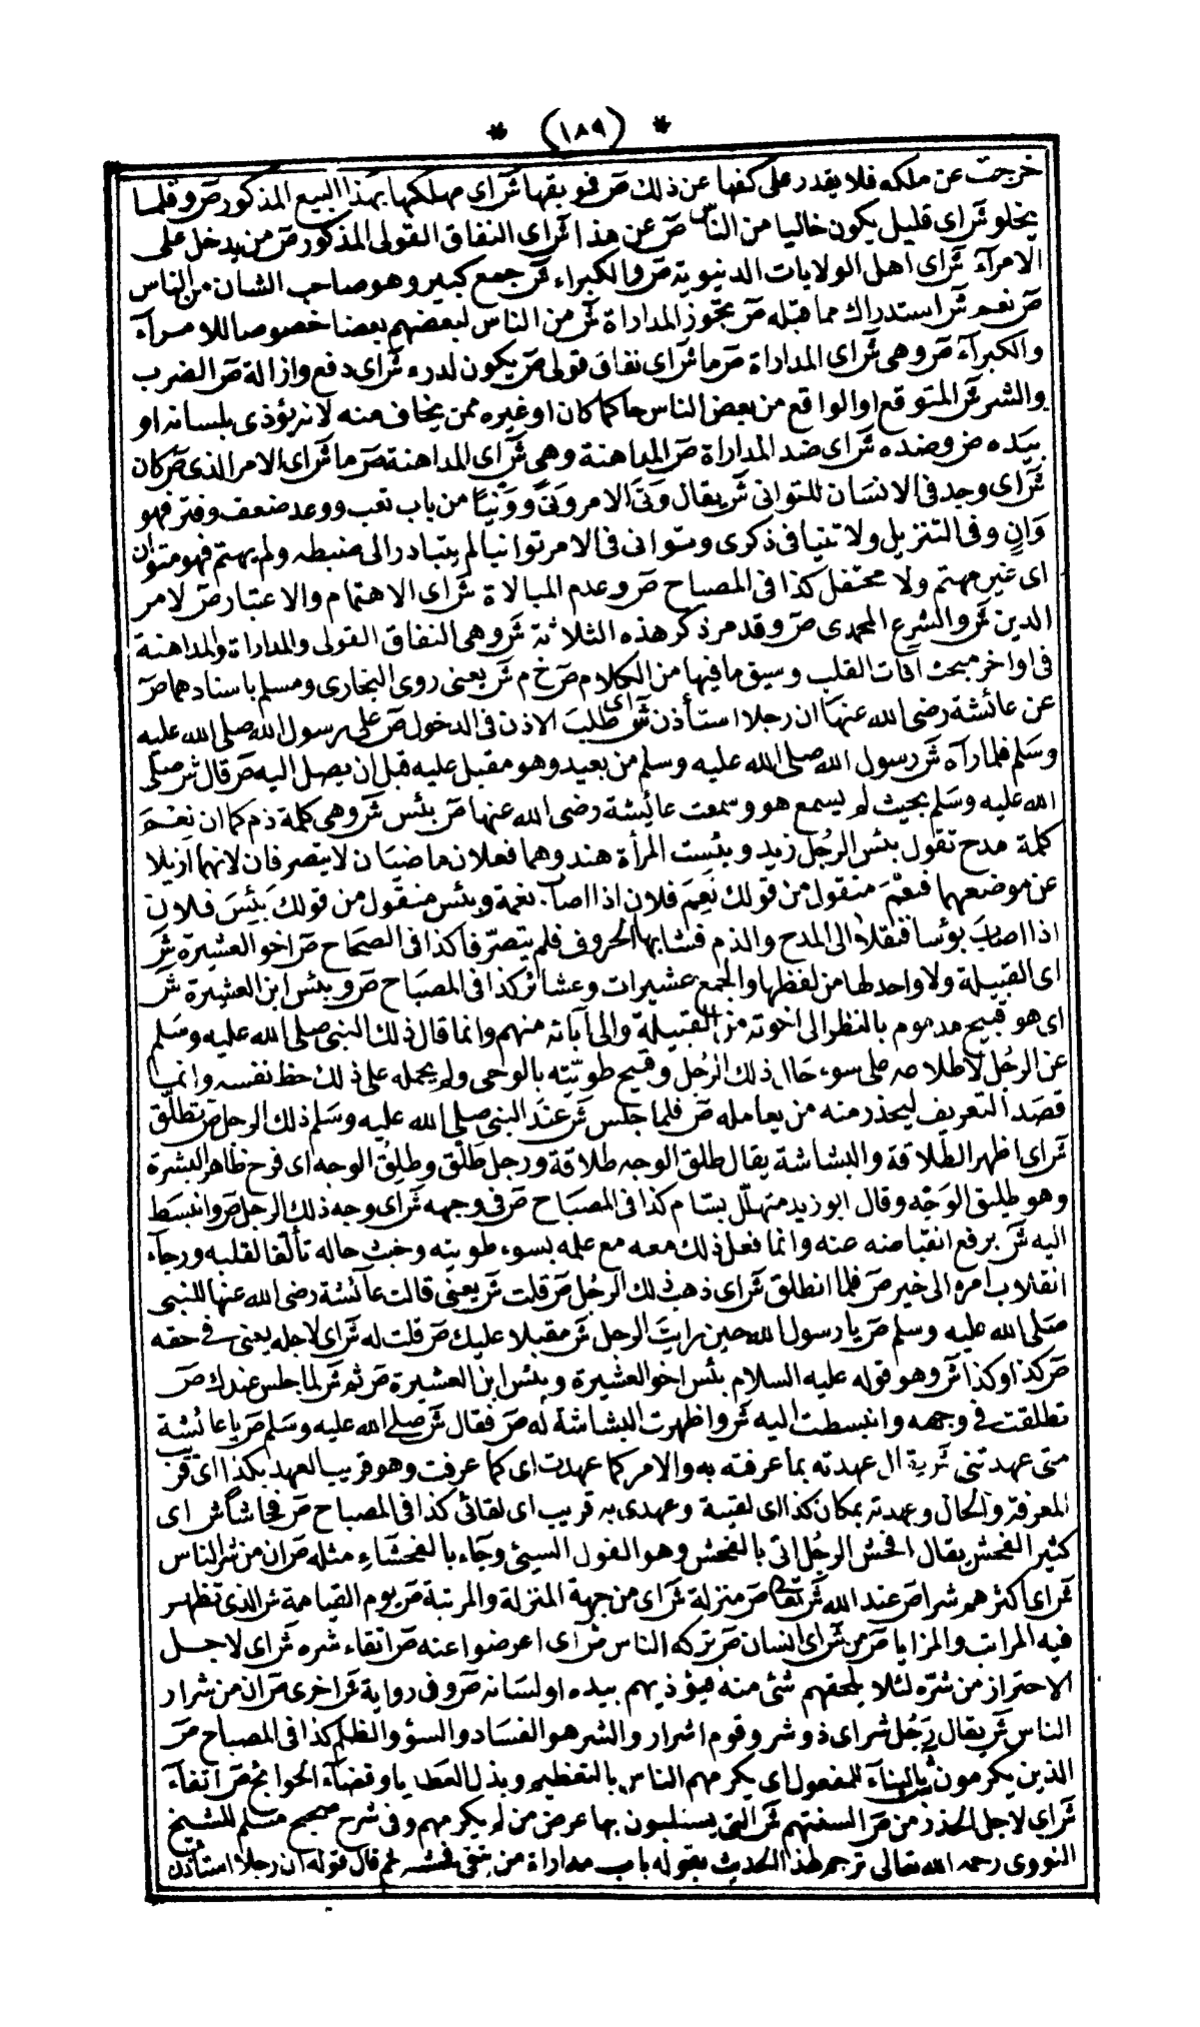 * (١٨٩) *
خرجت عن ملكه فلا يقدر على كفها عن ذلك صّ فموبقها شّ اى مهلكها بهذا البيع المذكور صّ وقلما
يخلو شّ اى قليل يكون خاليا من الناس صّ عن هذا شّ اى النفاق القولى المذكور صّ من يدخل على
الامرآء شّ اى اهل الولايات الدنيوية صّ والكبراء شّ جمع كبير وهو صاحب الشان من الناس
صّ نعم شّ استدراك مما قبله صّ يجوز المداراة شّ من الناس لبعضهم بعضا خصوصا للامرآء
والكبرآء صّ وهى شّ اى المداراة صّ ما شّ اى نفاق قولى صّ يكون لدرء شّ اى دفع وازالة صّ الضرب
والشر شّ المتوقع او الواقع من بعض الناس حاكما كان او غيره ممن يخاف منه لانه يؤذى بلسانه او
بيده صّ وضده شّ اى ضد المداراة صّ المداهنة وهى شّ اى المداهنة صّ ما شّ اى الامر الذى صّ كان
شّ اى وجد فى الانسان للتوانى شّ يقال ونى الامر ونى وونيا من باب تعب ووعد ضعف وفتر فهو
وان وفى التنزيل ولا تنيا فى ذكرى وتوانى فى الامر توانيا لم يتبادر الى ضبطه ولم يهتم فهو متوان
اى غير مهتم ولا محتفل كذا فى المصباح صّ وعدم المبالاة شّ اى الاهتمام والاعتبار صّ لامر
الدين شّ والشرع المحمدى صّ وقد مر ذكر هذه الثلاثة شّ وهى النفاق القولى والمداراة والمداهنة
فى اواخر مبحث آفات القلب وسبق ما فيها من الكلام صّ خ م شّ يعنى روى البخارى ومسلم باسنادهما صّ
عن عائشة رضى الله عنها ان رجلا استأذن شّ اى طلب الاذن فى الدخول صّ على رسول الله صلى الله عليه
وسلم فلما رآه شّ رسول الله صلى الله عليه وسلم من بعيد وهو مقبل عليه قبل ان يصل اليه صّ قال شّ صلى
الله عليه وسلم بحيث لم يسمع هو وسمعت عائيشة رضى الله عنها صّ بئس شّ وهى كلمة ذم كما ان نعم
كلمة مدح تقول بئس الرجل زيد وبئست المرأة هند وهما فعلان ماضيان لا يتصرفان لانهما ازيلا
عن موضعهما فنعم منقول من قولك نعم فلان اذا اصاب نعمة وبئس منقول من قولك بئس فلان
اذا اصاب بؤسا فنقلا الى المدح والذم فشابها الحروف فلم يتصرفا كذا فى الصحاح صّ اخو العشيرة شّ
اى القبيلة ولا واحد لها من لفظها والجمع عشيرات وعشائر كذا فى المصباح صّ وبئس ابن العشيرة شّ
اى هو قبيح مدموم بالنظر الى اخوته من القبيلة والى آبائه منهم وانما قال ذلك النبى صلى الله عليه وسلم
عن الرجل لاطلاعه على سوء حال ذلك الرجل وقبيح طويته بالوحى ولم يحمله على ذلك حظ نفسه وانما
قصد التعريف ليحذر منه من يعامله صّ فلما جلس شّ عند النبى صلى الله عليه وسلم ذلك الرجل صّ تطلق
شّ اى اظهر الطلاقة والبشاشة يقال طلق الوجه طلاقة ورجل طلق وطلق الوجه اى فرح ظاهر البشرة
وهو طليق الوجه وقال ابو زيد متهلل بسام كذا فى المصباح صّ فى وجهه شّ اى وجه ذلك الرجل صّ وانبسط
اليه شّ برفع انقباضه عنه وانما فعل ذلك معه مع علمه بسوء طويته وخبث حاله تألفا لقلبه ورجآء
انقلاب امره الى خير صّ فلما انطلق شّ اى ذهب ذلك الرجل صّ قلت شّ يعنى قالت عآئشة رضى الله عنها للنبى
صلى الله عليه وسلم صّ يا رسول الله حين رايت الرجل شّ مقبلا عليك صّ قلت له شّ اى لاجله يعنى فى حقه
صّ كذا وكذا شّ وهو قوله عليه السلام بئس اخو العشيرة وبئس ابن العشيرة صّ ثم شّ لما جلس عندك صّ
تطلقت فى وجهه وانبسطت اليه شّ واظهرت البشاشة له صّ فقال شّ صلى الله عليه وسلم صّ يا عائشة
متى عهدتنى شّ يقال عهدته بما عرفته به والامر كما عهدت اى كما عرفت وهو قريب العهد بكذا اى قريب
المعرفة والحال وعهدته بمكان كذا اى لقيته وعهدى به قريب اى لقائى كذا فى المصباح صّ فحاشا شّ اى
كثير الفحش يقال افحش الرجل اتى بالفحش وهو القول السيئ وجآء بالفحشاء مثله صّ ان من شر الناس
شّ اى اكثرهم شرا صّ عند الله شّ تعالى صّ منزلة شّ اى من جهة المنزلة والمرتبة صّ يوم القيامة شّ الذى تظهر
فيه المراتب والمزايا صّ من شّ اى انسان صّ تركه الناس شّ اى اعرضوا عنه صّ اتقاء شره شّ اى لاجل
الاحتراز من شره لئلا يلحقهم شئ منه فيؤذيهم بيده او لسانه صّ وفى رواية شّ اخرى صّ ان من شرار
الناس شّ يقال رجل شر اى ذو شر وقوم اشرار والشر هو الفساد والسؤ والظلم كذا فى المصباح صّ
الذين يكرمون شّ بالبنآء للمفعول اى يكرمهم الناس بالتعظيم وبذل العطايا وقضآء الحوايج صّ اتقآء
شّ اى لاجل الحذر من صّ السنتهم شّ التى يسلبون بها عرض من لم يكرمهم وفى شرح صحيح مسلم للشيخ
النووى رحمه الله تعالى ترجم لهذا الحديث بقوله باب مداراة من يتقى فحشه ثم قال قوله ان رجلا استأذن